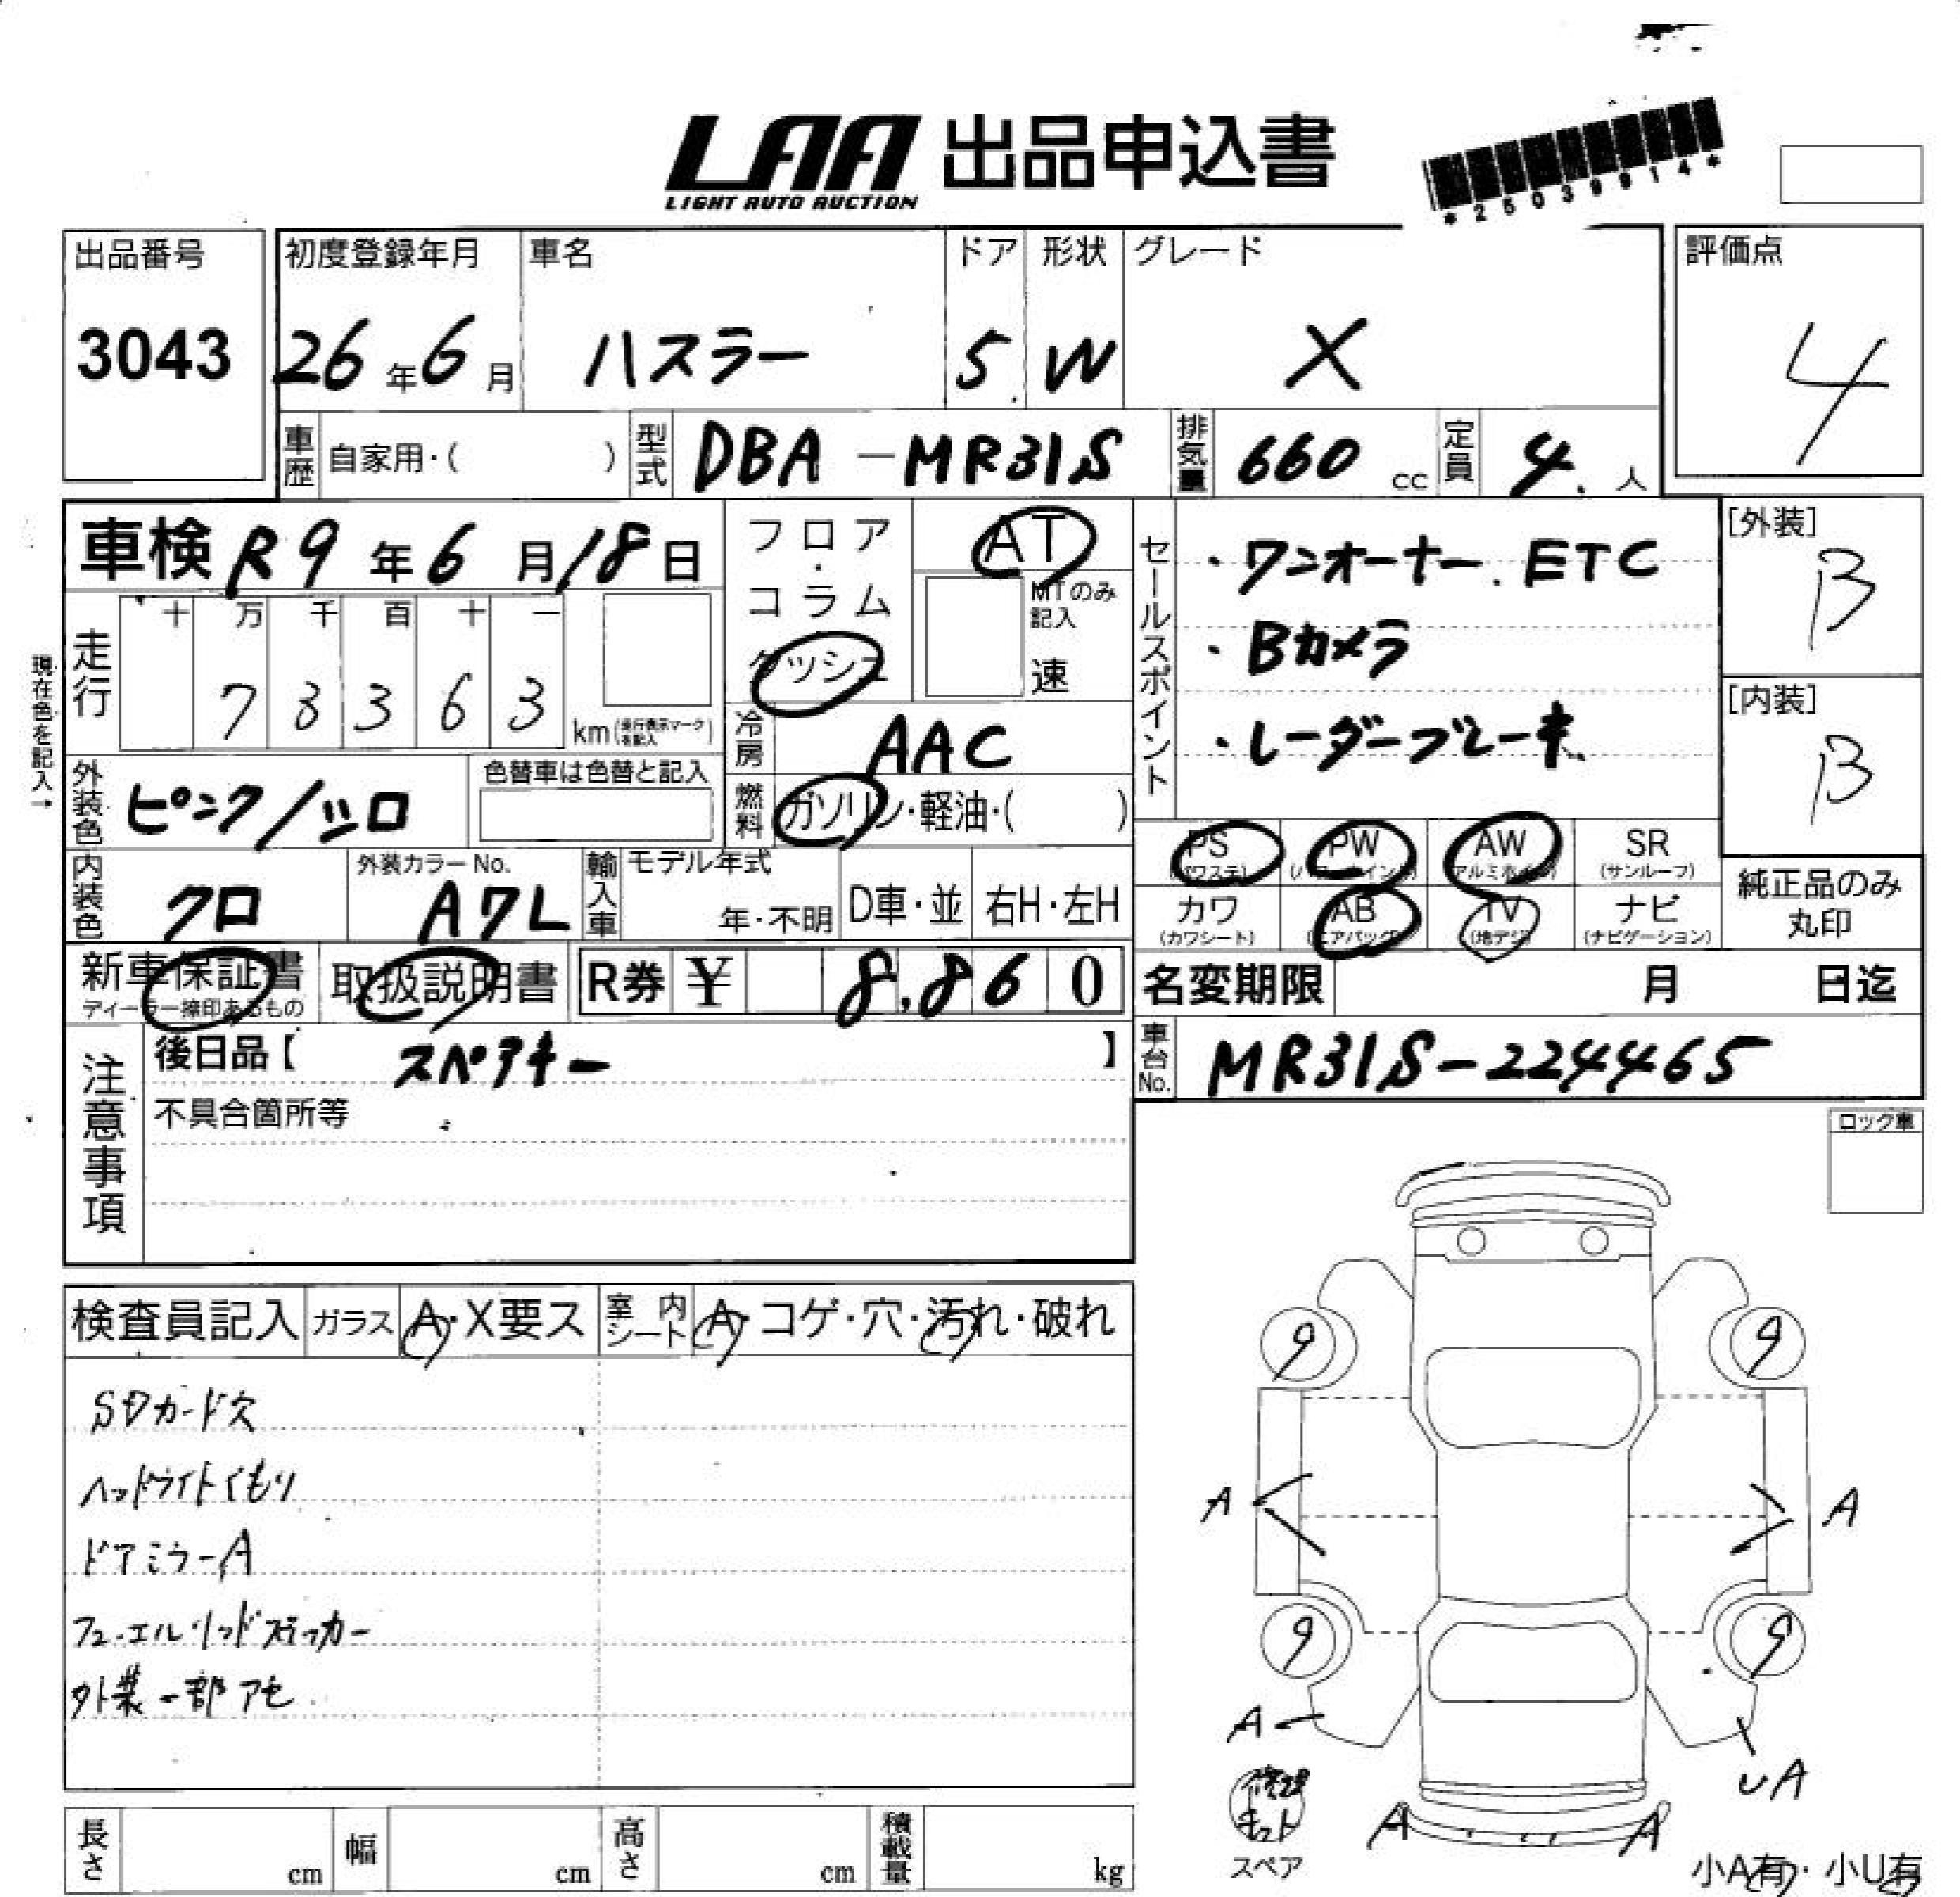 LAA 出品申込書
LIGHT AUTO AUCTION
*25039914*
出品番号 初度登録年月 車名 ドア 形状 グレード 評価点
3043 26年6月 ハスラー 5 W X 4
車歴 自家用・( ) 型式 DBA-MR31S 排気量 660 cc 定員 4人
車検 R9年6月18日 フロア・コラム ダッシュ AT
MTのみ記入 速
セールスポイント
・ワンオーナー.ETC
・Bカメラ
・レーダーブレーキ
[外装] B
[内装] B
現在色を記入→
走行 十 万 千 百 十 一
7 3 3 6 3 km (走行表示マークを記入)
冷房 AAC
外装色 ピンク/シロ 色替車は色替と記入
燃料 ガソリン・軽油・( )
PS (パワステ) PW (パワーウインド) AW (アルミホイル) SR (サンルーフ)
カワ (カワシート) AB (エアバッグ) TV (地デジ) ナビ (ナビゲーション)
純正品のみ丸印
内装色 クロ 外装カラーNo. A7L 輸入車 モデル年式 年・不明 D車・並 右H・左H
新車保証書 ディーラー捺印あるもの 取扱説明書 R券 ¥ 8,860
名変期限 月 日迄
車台No. MR31S-224465
注意事項
後日品【 スペアキー 】
不具合箇所等
ロック車
検査員記入 ガラス A・X要ス 室内シート A・コゲ・穴・汚れ・破れ
SDカード欠
ヘッドライトくもり
ドアミラーA
フューエルリッドステッカー
外装一部アセ
9 9
A A
9 9
A UA
修理キット
スペア
A A
小A有・小U有
長さ cm 幅 cm 高さ cm 積載量 kg